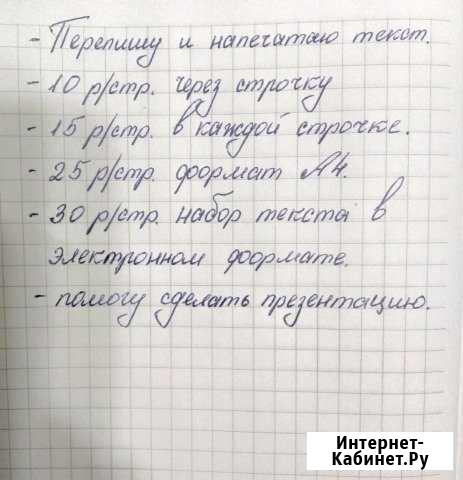 - Перепишу и напечатаю текст.
- 10 р/стр. через строчку
- 15 р/стр. в каждой строчке.
- 25 р/стр. формат А4.
- 30 р/стр. набор текста в
электронном формате.
- помогу сделать презентацию.
Интернет-
Кабинет.Ру